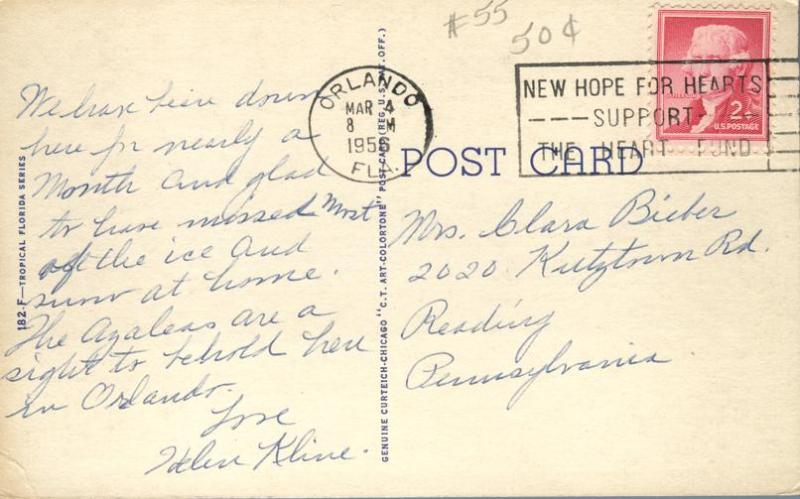 #55
50¢
ORLANDO
MAR 4
8 M
1956
FLA.
NEW HOPE FOR HEARTS
SUPPORT
THE HEART FUND
2¢
U.S. POSTAGE
POST CARD
We have been down
here for nearly a
Month and glad
to have missed Most
of the ice and
snow at home.
The Azaleas are a
sight to behold here
in Orlando.
Love
Helen Kline.
Mrs. Clara Bieber
2020 Kutztown Rd.
Reading
Pennsylvania
182-F—TROPICAL FLORIDA SERIES
GENUINE CURTEICH-CHICAGO "C.T. ART-COLORTONE" POST CARD (REG. U.S. PAT. OFF.)